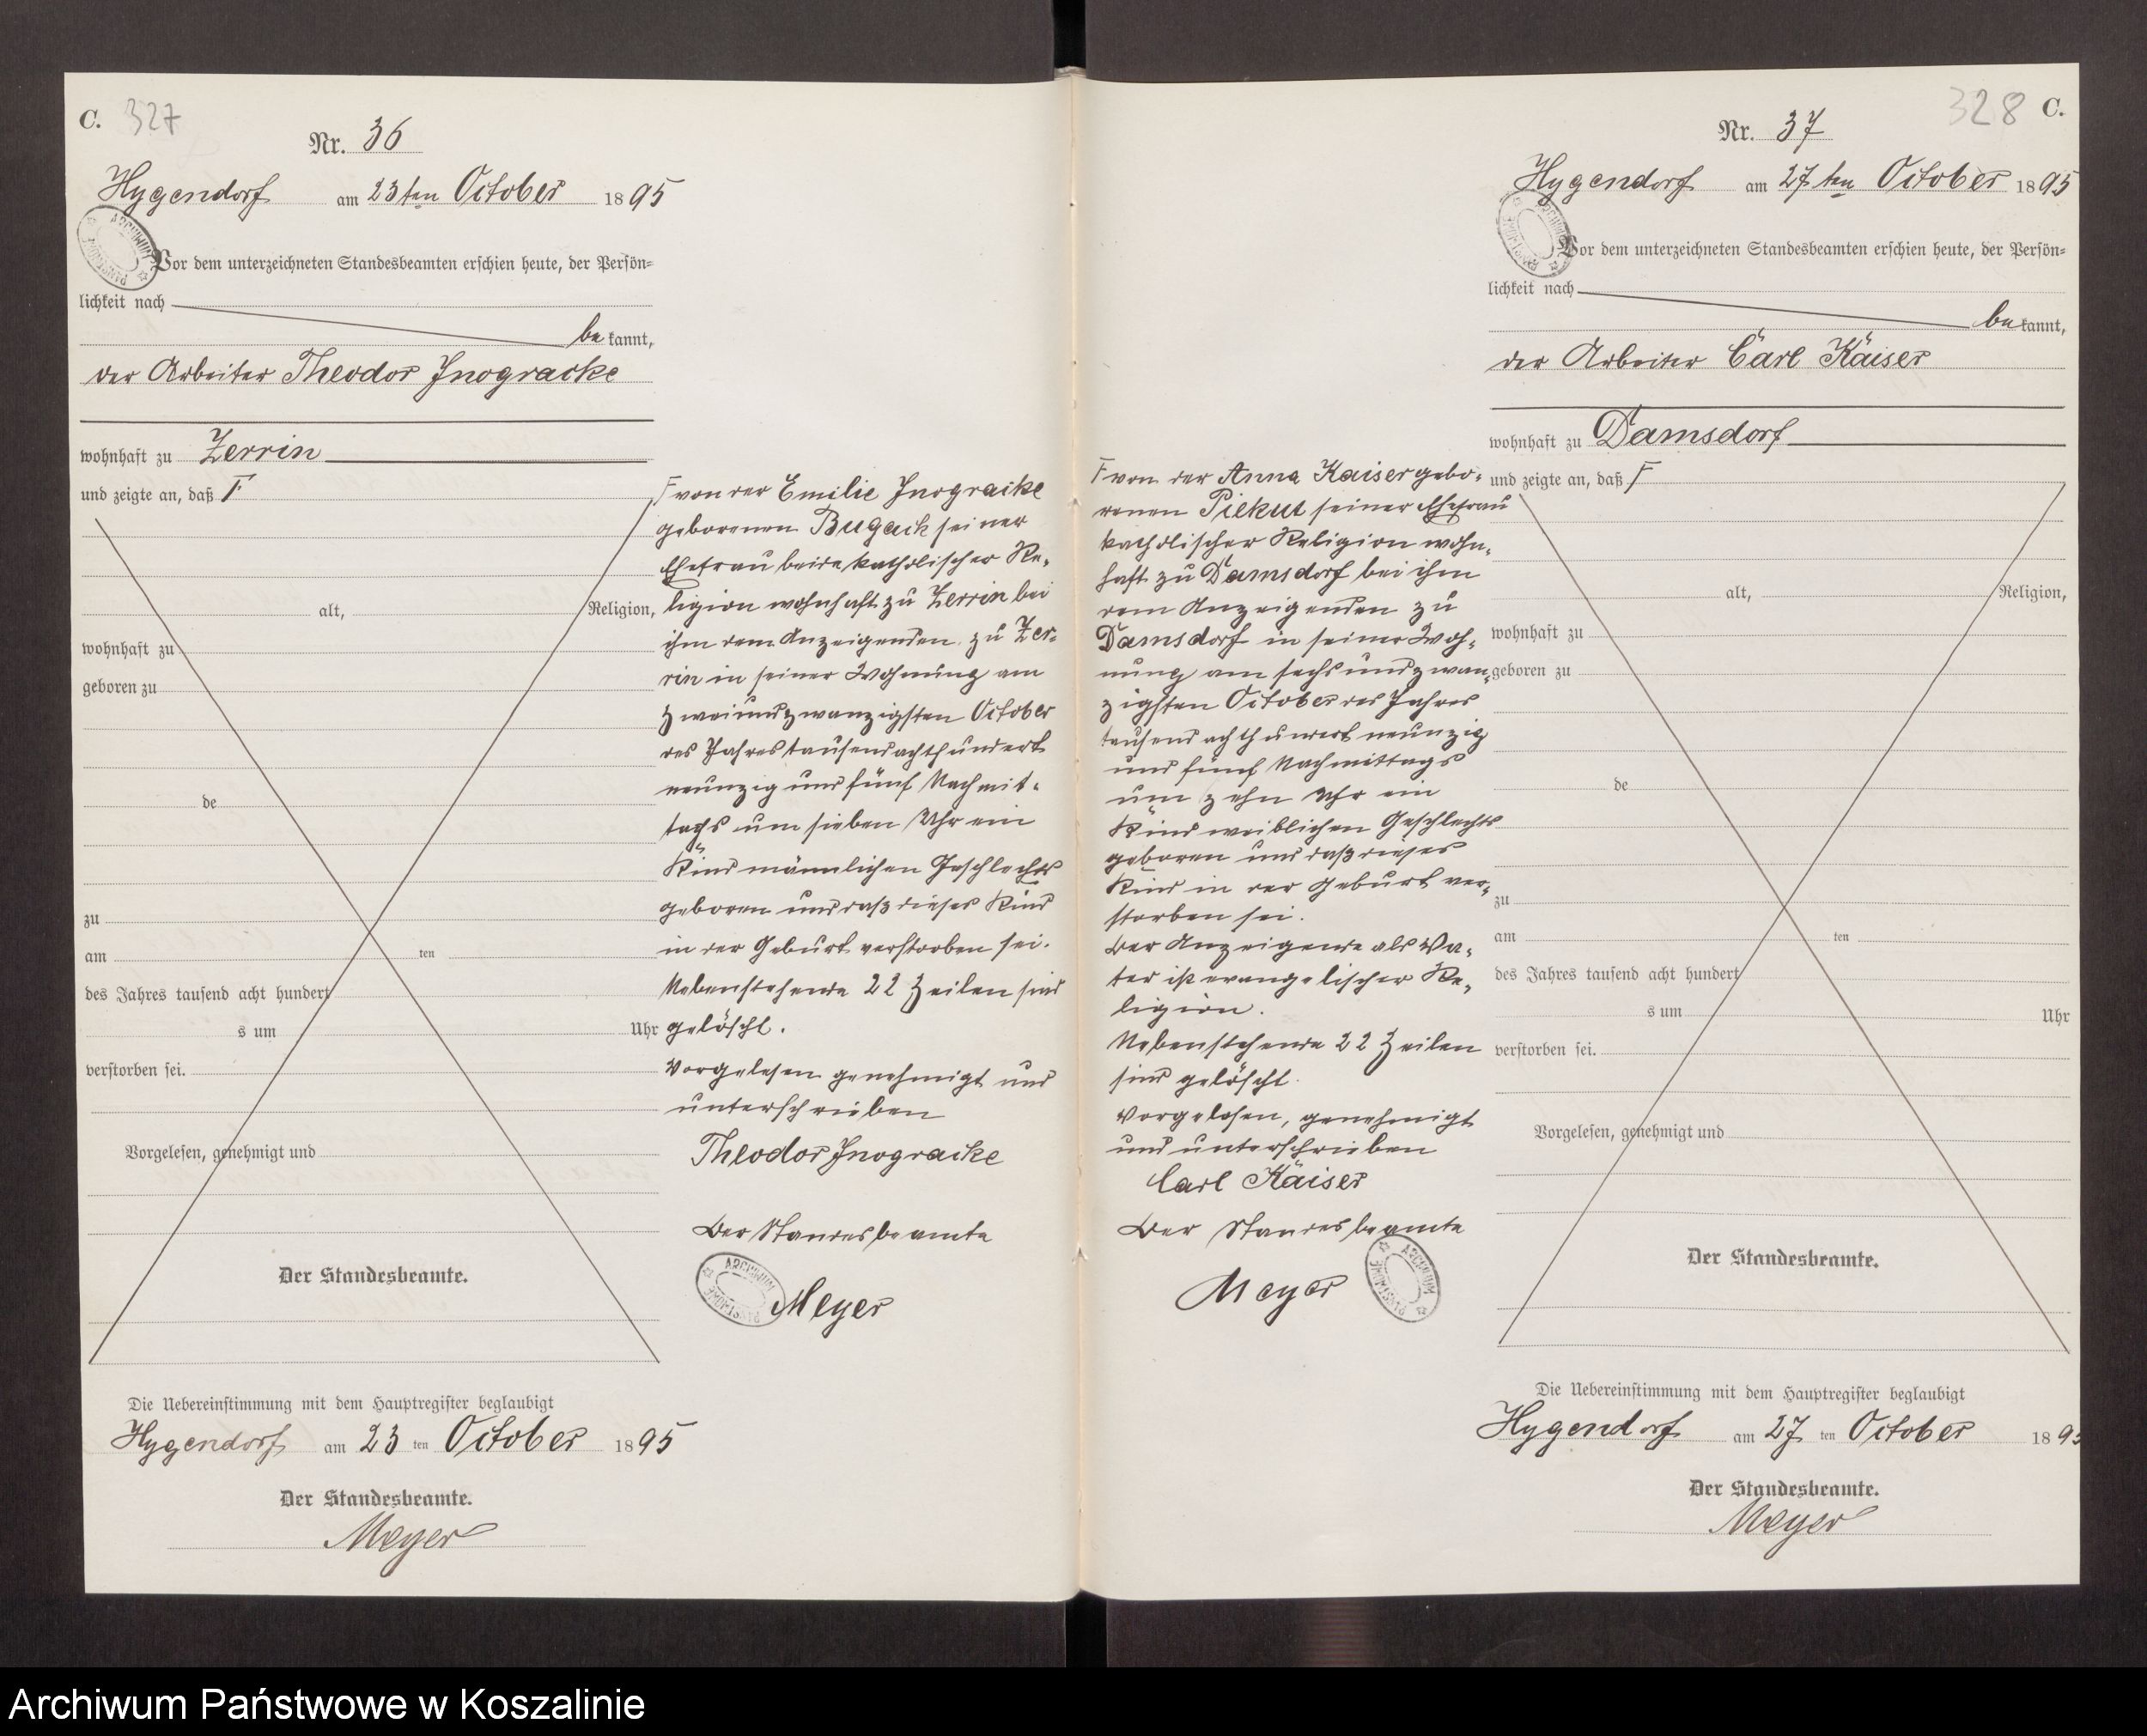 C. 327
Nr. 36
Hygendorf am 23ten October 1895
Vor dem unterzeichneten Standesbeamten erschien heute, der Persön=
lichkeit nach
be kannt,
der Arbeiter Theodor Jnogracke
wohnhaft zu Zerrin
und zeigte an, daß Γ
alt, Religion,
wohnhaft zu
geboren zu
de
zu
am ten
des Jahres tausend acht hundert
s um Uhr
verstorben sei.
Vorgelesen, genehmigt und
Der Standesbeamte.
Die Uebereinstimmung mit dem Hauptregister beglaubigt
Hygendorf am 23 ten October 1895
Der Standesbeamte.
Meyer
Γ von der Emilie Jnogracke
geborenen Bugack seiner
Ehefrau beide katholischer Re-
ligion wohnhaft zu Zerrin bei
ihm dem Anzeigenden zu Zer-
rin in seiner Wohnung am
zweiundzwanzigsten October
des Jahres tausendachthundert
neunzig und fünf Nachmit-
tags um sieben Uhr ein
Kind männlichen Geschlechts
geboren und daß dieses Kind
in der Geburt verstorben sei.
Nebenstehende 22 Zeilen sind
gelöscht.
Vorgelesen genehmigt und
unterschrieben
Theodor Jnogracke
Der Standesbeamte
ARCHIWUM PAŃSTWOWE
Meyer
328 C.
Nr. 37
Hygendorf am 27ten October 1895
Vor dem unterzeichneten Standesbeamten erschien heute, der Persön=
lichkeit nach
be kannt,
der Arbeiter Carl Kaiser
wohnhaft zu Damsdorf
und zeigte an, daß Γ
alt, Religion,
wohnhaft zu
geboren zu
de
zu
am ten
des Jahres tausend acht hundert
s um Uhr
verstorben sei.
Vorgelesen, genehmigt und
Der Standesbeamte.
Die Uebereinstimmung mit dem Hauptregister beglaubigt
Hygendorf am 27 ten October 1895
Der Standesbeamte.
Meyer
Γ von der Anna Kaiser gebo-
renen Piekut seiner Ehefrau
katholischer Religion wohn-
haft zu Damsdorf bei ihm
dem Anzeigenden zu
Damsdorf in seiner Woh-
nung am sechsundzwan-
zigsten October des Jahres
tausend achthundert neunzig
und fünf Nachmittags
um zehn Uhr ein
Kind weiblichen Geschlechts
geboren und daß dieses
Kind in der Geburt ver-
storben sei.
Der Anzeigende als Va-
ter ist evangelischer Re-
ligion.
Nebenstehende 22 Zeilen
sind gelöscht.
Vorgelesen, genehmigt
und unterschrieben
Carl Kaiser
Der Standesbeamte
Meyer
ARCHIWUM PAŃSTWOWE
Archiwum Państwowe w Koszalinie